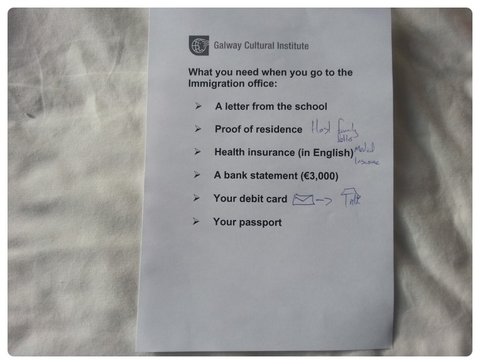 Galway Cultural Institute
What you need when you go to the
Immigration office:
➤ A letter from the school
➤ Proof of residence Host family
letter
➤ Health insurance (in English) Medical
Insurance
➤ A bank statement (€3,000)
➤ Your debit card
➤ Your passport